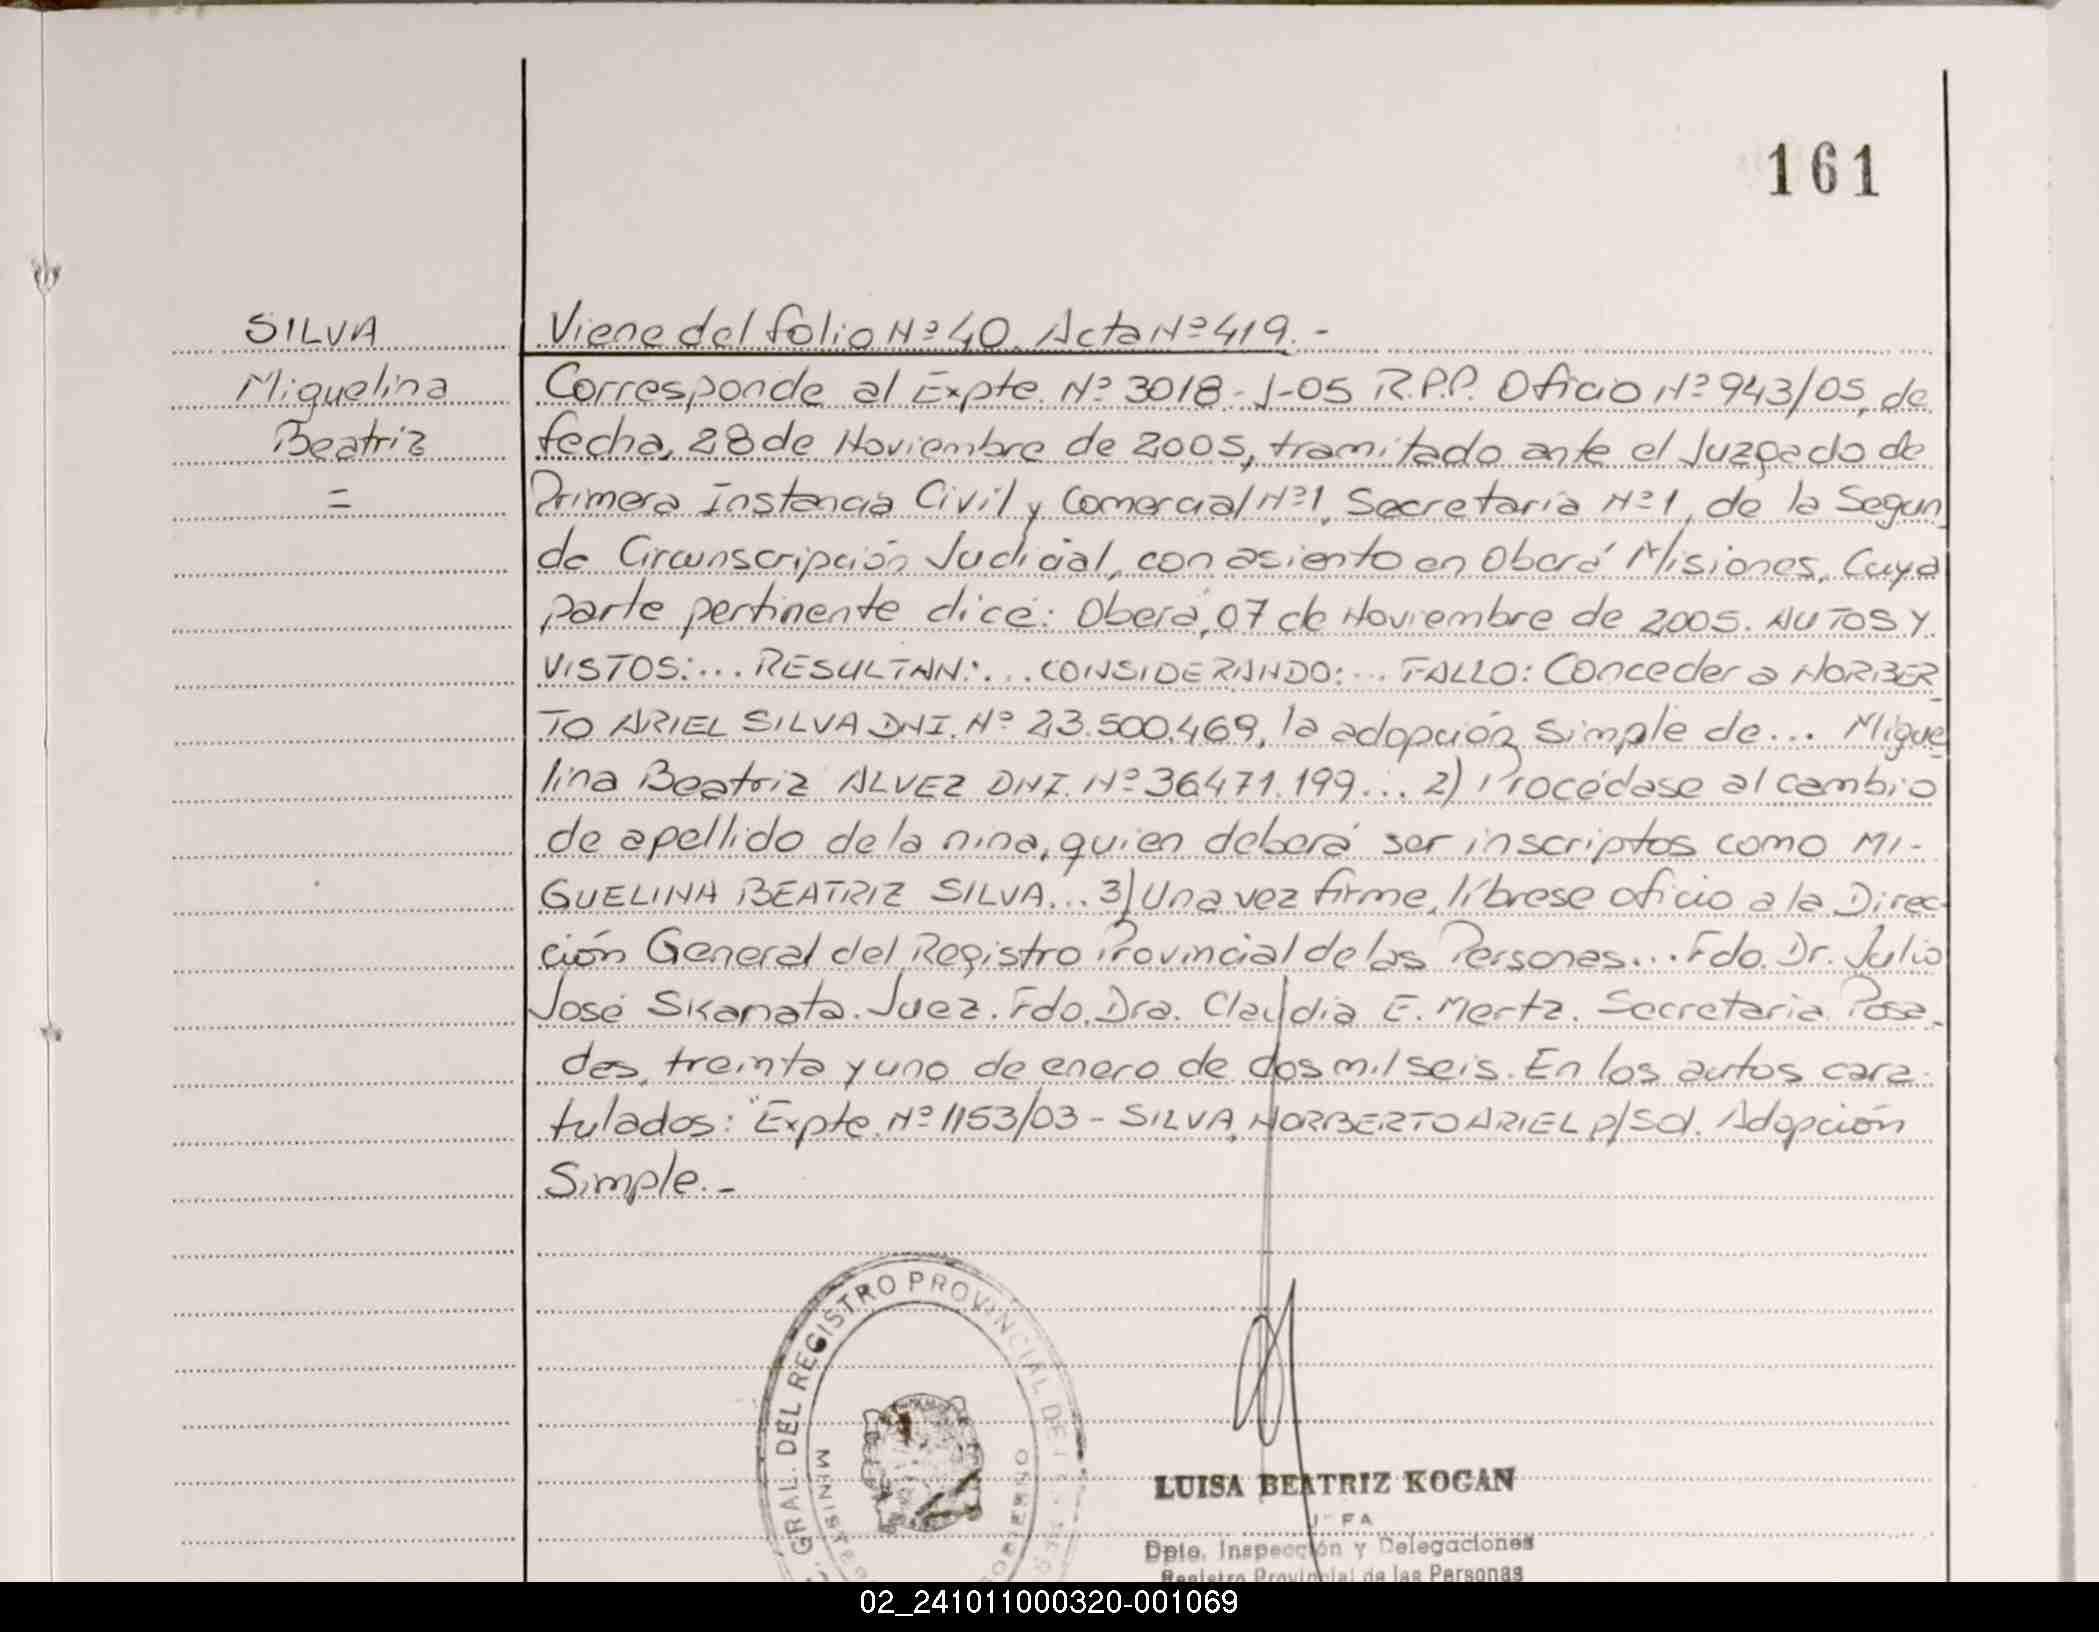 161
SILVA
Miguelina
Beatriz
=
Viene del folio Nº 40. Acta Nº 419.-
Corresponde al Expte. Nº 3018-J-05 R.P.P. Oficio Nº 943/05, de
fecha, 28 de Noviembre de 2005, tramitado ante el Juzgado de
Primera Instancia Civil y Comercial Nº 1, Secretaría Nº 1, de la Segun
da Circunscripción Judicial, con asiento en Oberá Misiones, Cuya
parte pertinente dice: Oberá, 07 de Noviembre de 2005. AUTOS Y
VISTOS:... RESULTAN:... CONSIDERANDO:... FALLO: Conceder a NORBER_
TO ARIEL SILVA DNI. Nº 23.500.469, la adopción simple de... Migue_
lina Beatriz ALVEZ DNI. Nº 36.471.199... 2) Procédase al cambio
de apellido de la nina, quien deberá ser inscriptos como MI-
GUELINA BEATRIZ SILVA... 3) Una vez firme, líbrese oficio a la Direc-
ción General del Registro Provincial de las Personas... Fdo. Dr. Julio
José Skanata. Juez. Fdo. Dra. Claudia E. Mertz. Secretaria. Posa_
das, treinta y uno de enero de dos mil seis. En los autos cara_
tulados: "Expte. Nº 1153/03 - SILVA, NORBERTO ARIEL p/Sol. Adopción
Simple.-
GRAL. DEL REGISTRO PROVINCIAL DE
LUISA BEATRIZ KOGAN
Dpto. Inspección y Delegaciones
Registro Provincial de las Personas
02_241011000320-001069